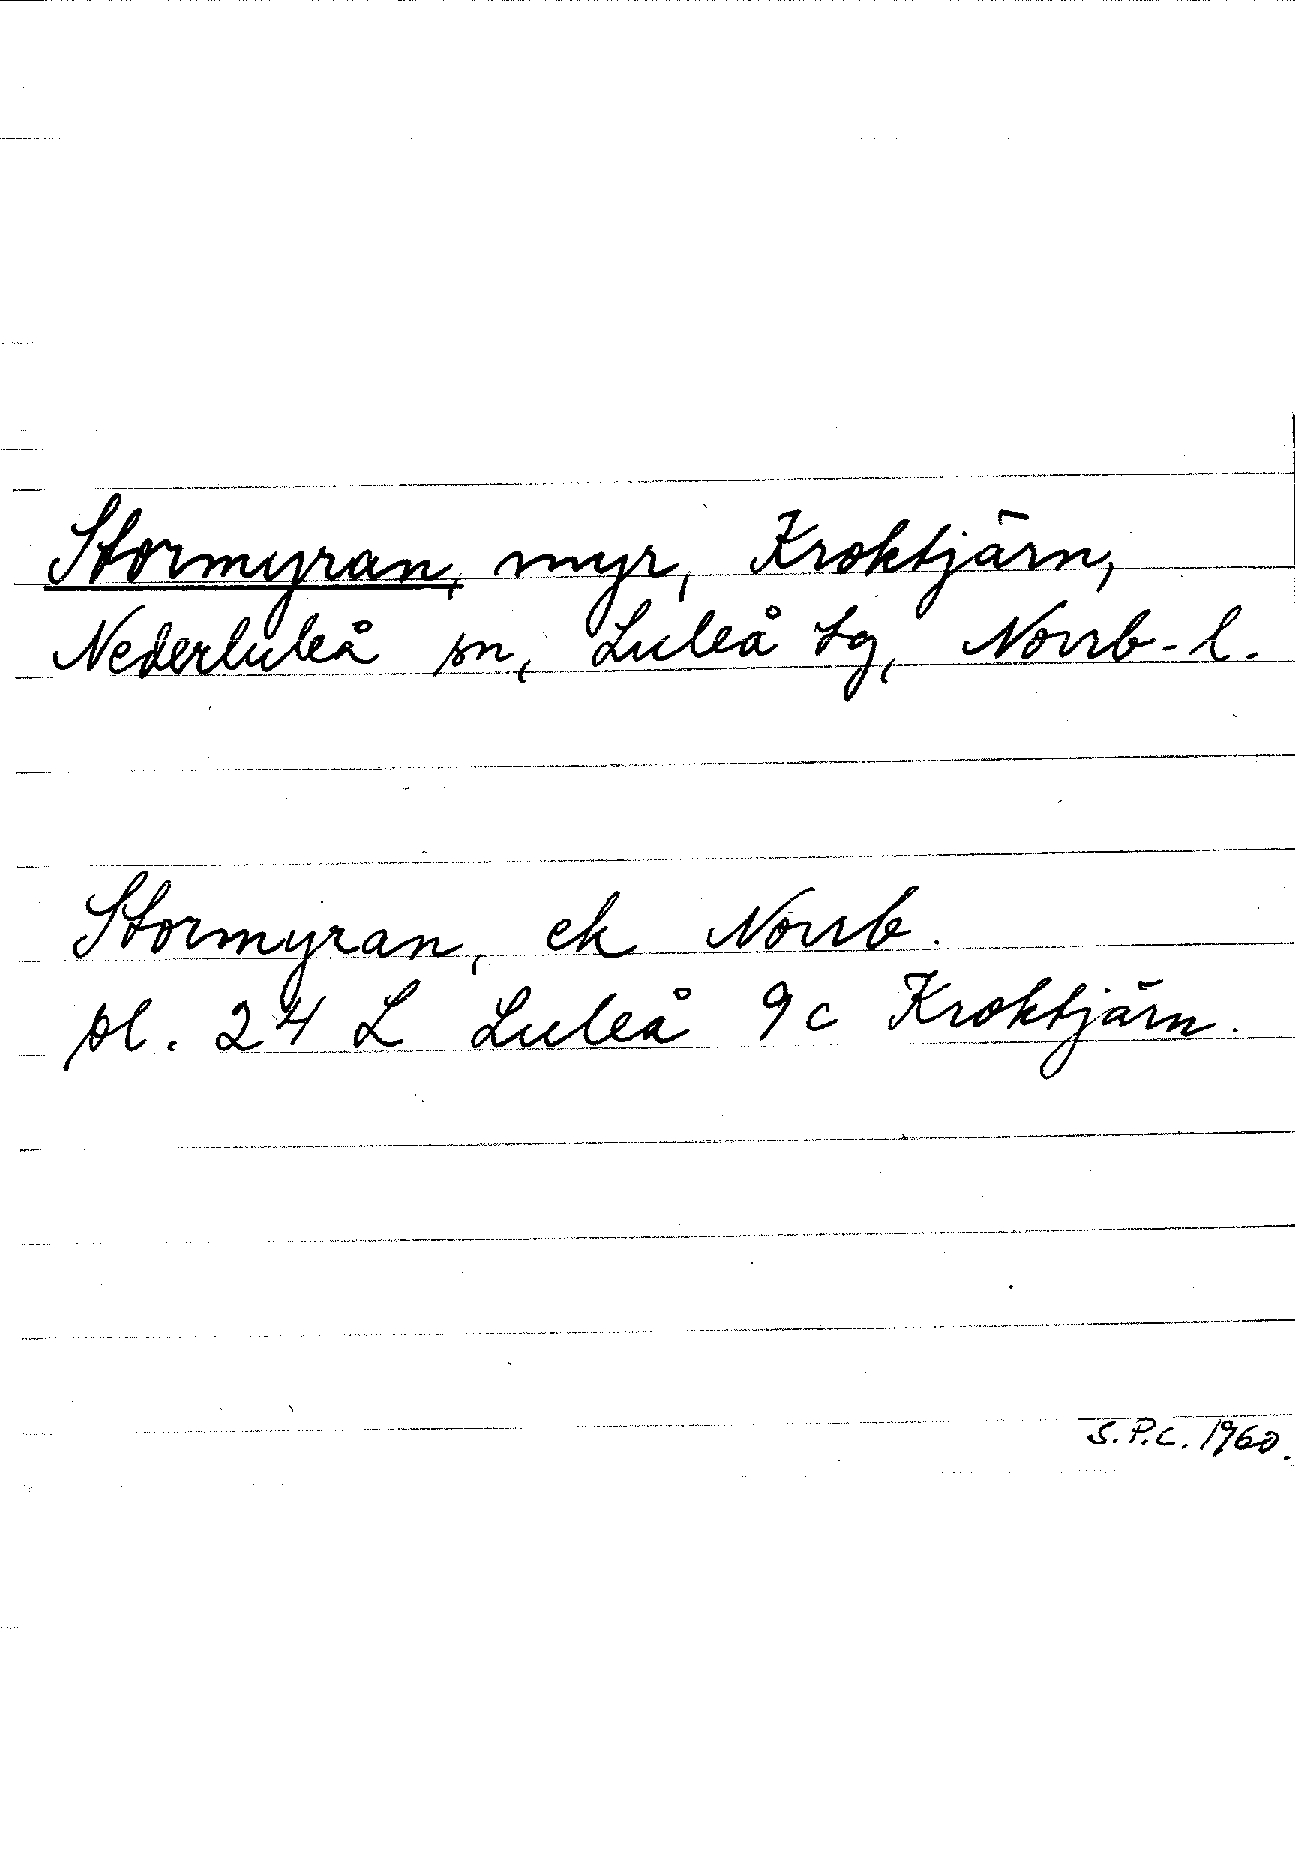 Stormyran, myr, Kroktjärn,
Nederluleå sn, Luleå tg, Norrb-l.
Stormyran, ek Norrb.
pl. 24 L Luleå 9c Kroktjärn.
S.P.C. 1960.